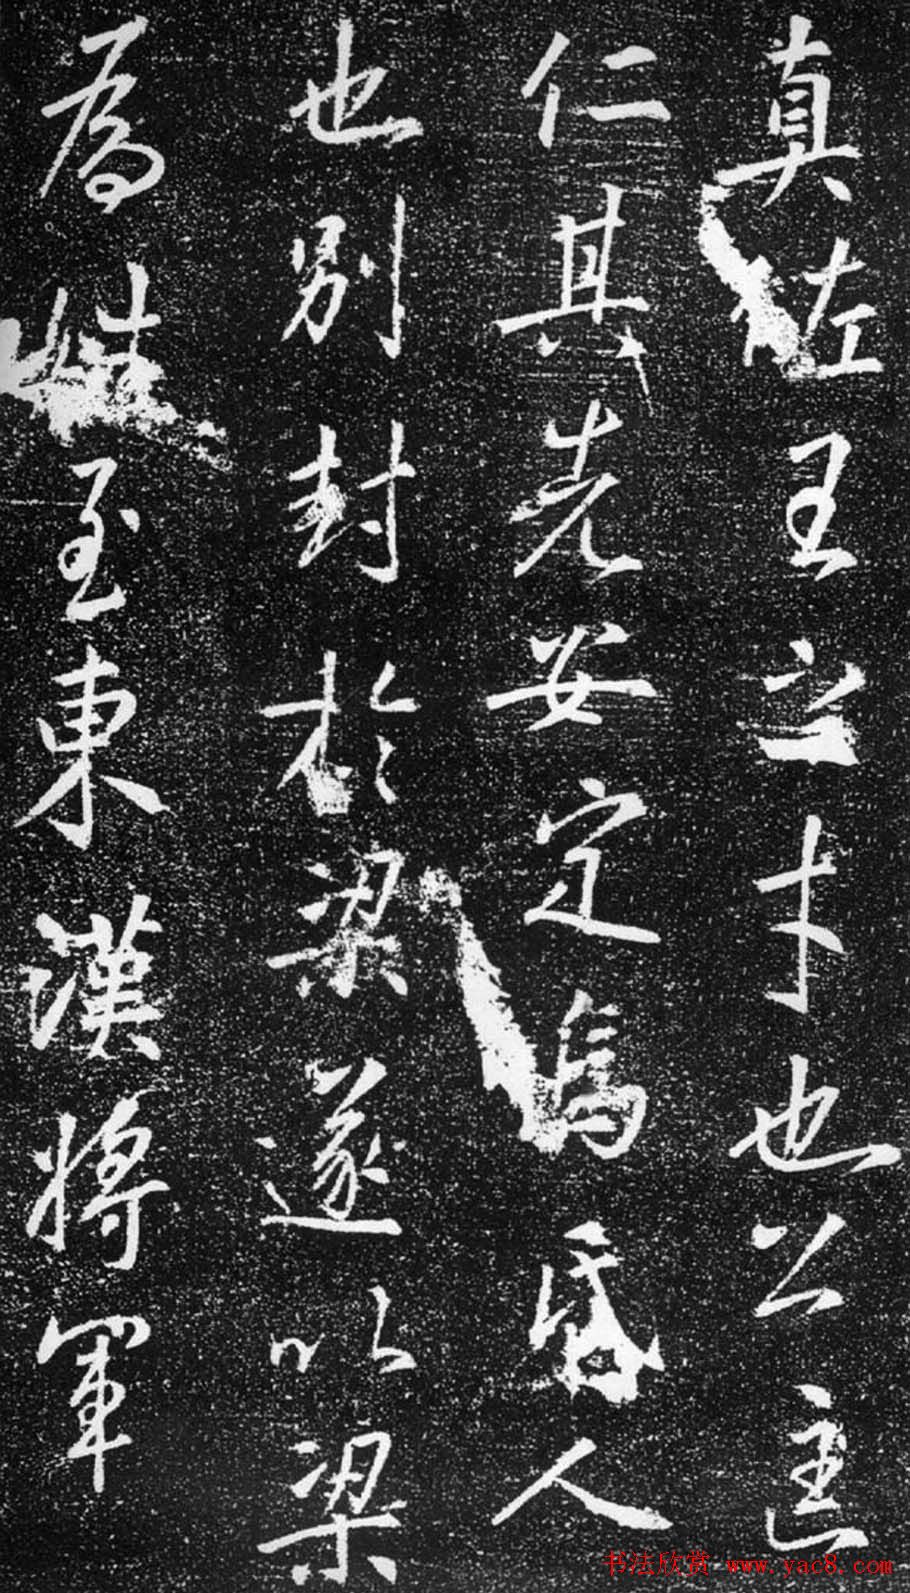 真佐王之才也公匡
仁其先安定烏氏人
也別封於梁遂以梁
為姓至東漢將軍
书法欣赏 www.yac8.com